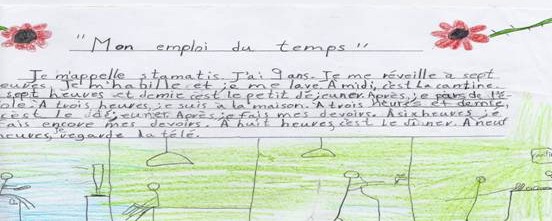 "Mon emploi du temps"
Je m'appelle stamatis. J'ai 9 ans. Je me réveille a sept
eures, Je m'habille et je me lave. A midi, c'est la cantine.
A sept heures et demie c'est le petit déjeuner. Après, je pars de l'é-
ole. A trois heures, je suis à la maison. A trois heures et demie,
c'est le déjeuner. Après je fais mes devoirs. A six heures je
fais encore mes devoirs. A huit heures, c'est le dîner. A neuf
heures, je regarde la télé.